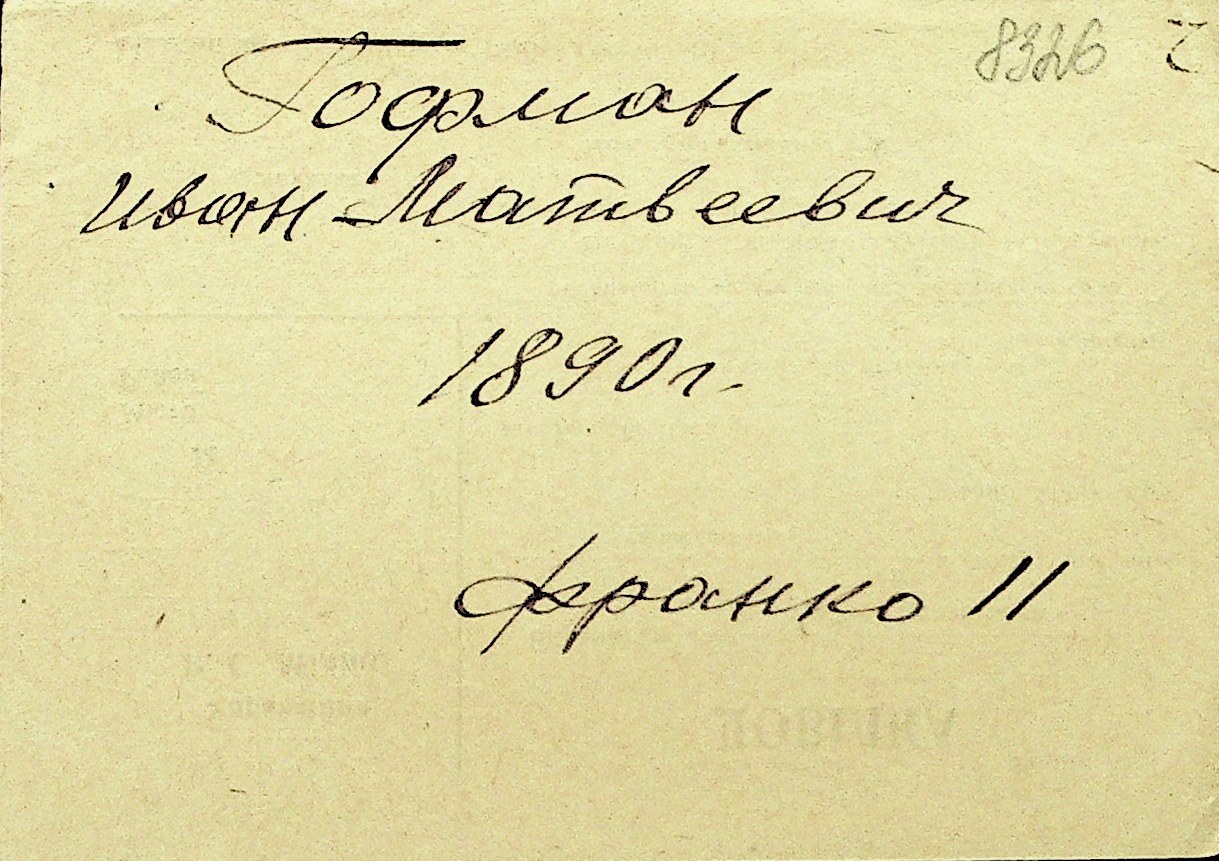 8326
Гофман
Иван Матвеевич
1890 г.
Франко 11